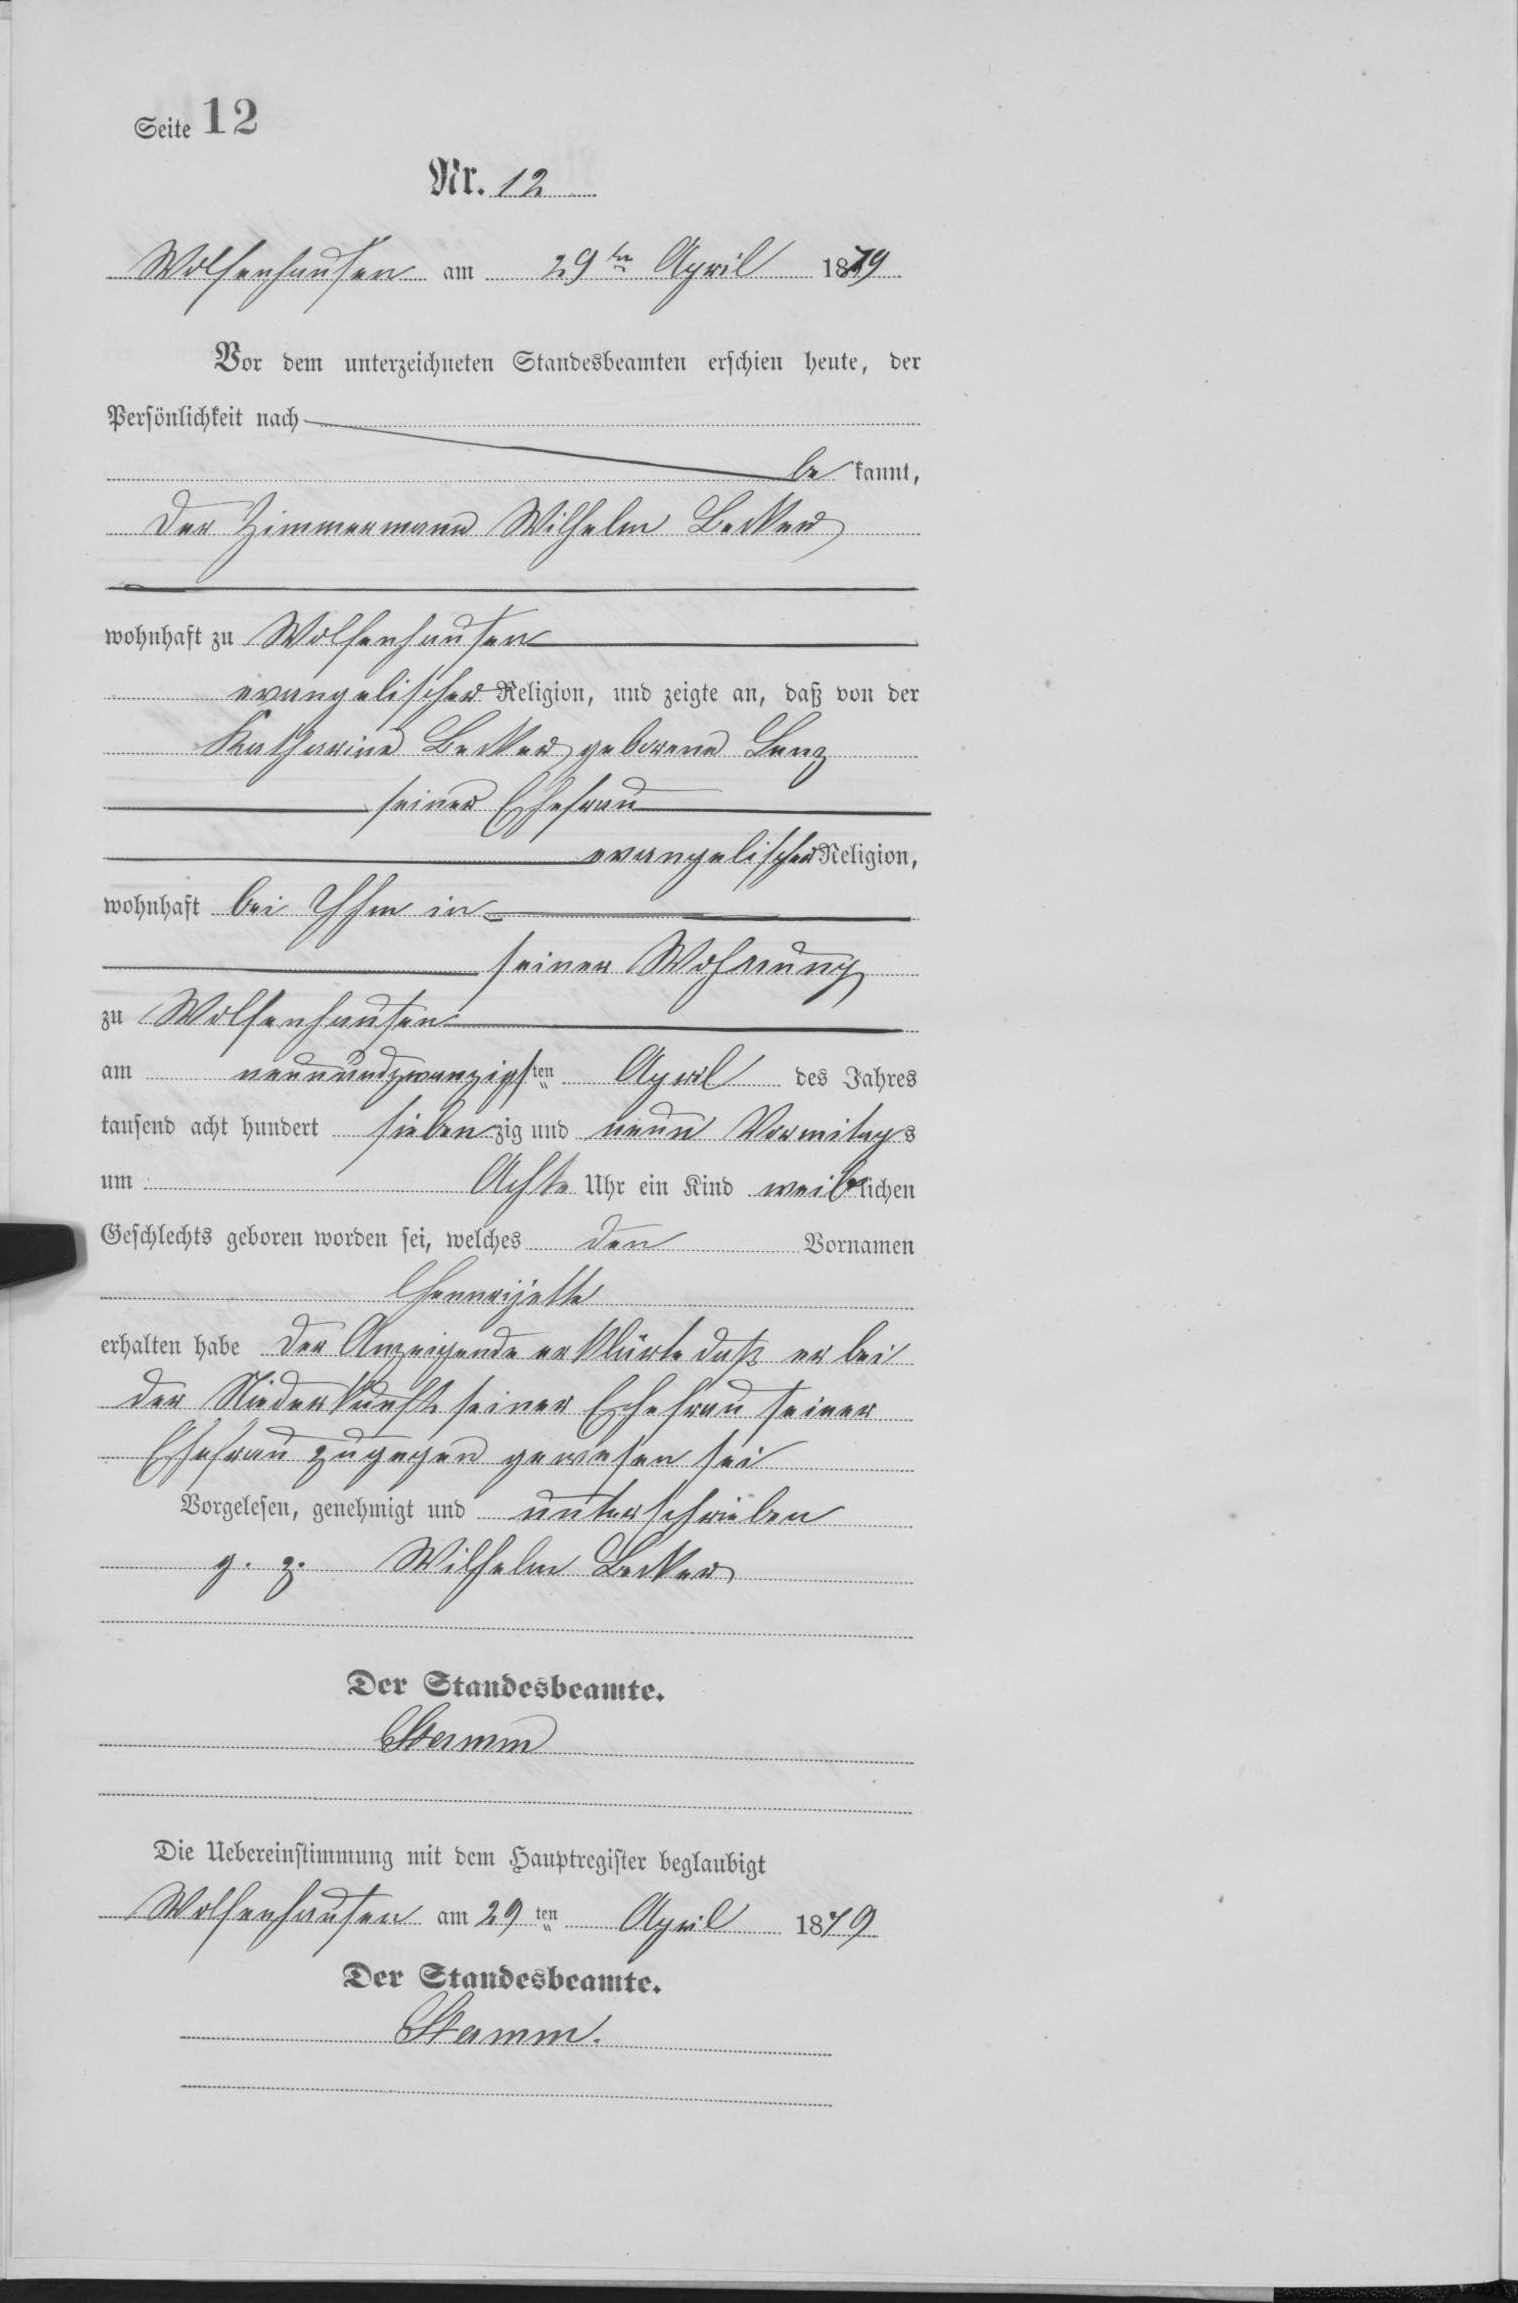 Seite 12
Nr. 12
Wolfenhausen am 29ten April 1879
Vor dem unterzeichneten Standesbeamten erschien heute, der
Persönlichkeit nach
be kannt,
der Zimmermann Wilhelm Becker
wohnhaft zu Wolfenhausen
evangelischer Religion, und zeigte an, daß von der
Katharine Becker geborene Lenz
seiner Ehefrau
evangelischer Religion,
wohnhaft bei Ihm in
seiner Wohnung
zu Wolfenhausen
am neunundzwanzigsten April des Jahres
tausend acht hundert siebenzig und neun Vormitags
um Achte Uhr ein Kind weiblichen
Geschlechts geboren worden sei, welches den Vornamen
Hennrijette
erhalten habe der Anzeigende erklärte daß er bei
der Niederkunft seiner Ehefrau seiner
Ehefrau zugegen gewesen sei
Vorgelesen, genehmigt und unterschrieben
g. z. Wilhelm Becker
Der Standesbeamte.
Stamm
Die Uebereinstimmung mit dem Hauptregister beglaubigt
Wolfenhausen am 29ten April 1879
Der Standesbeamte.
Stamm.